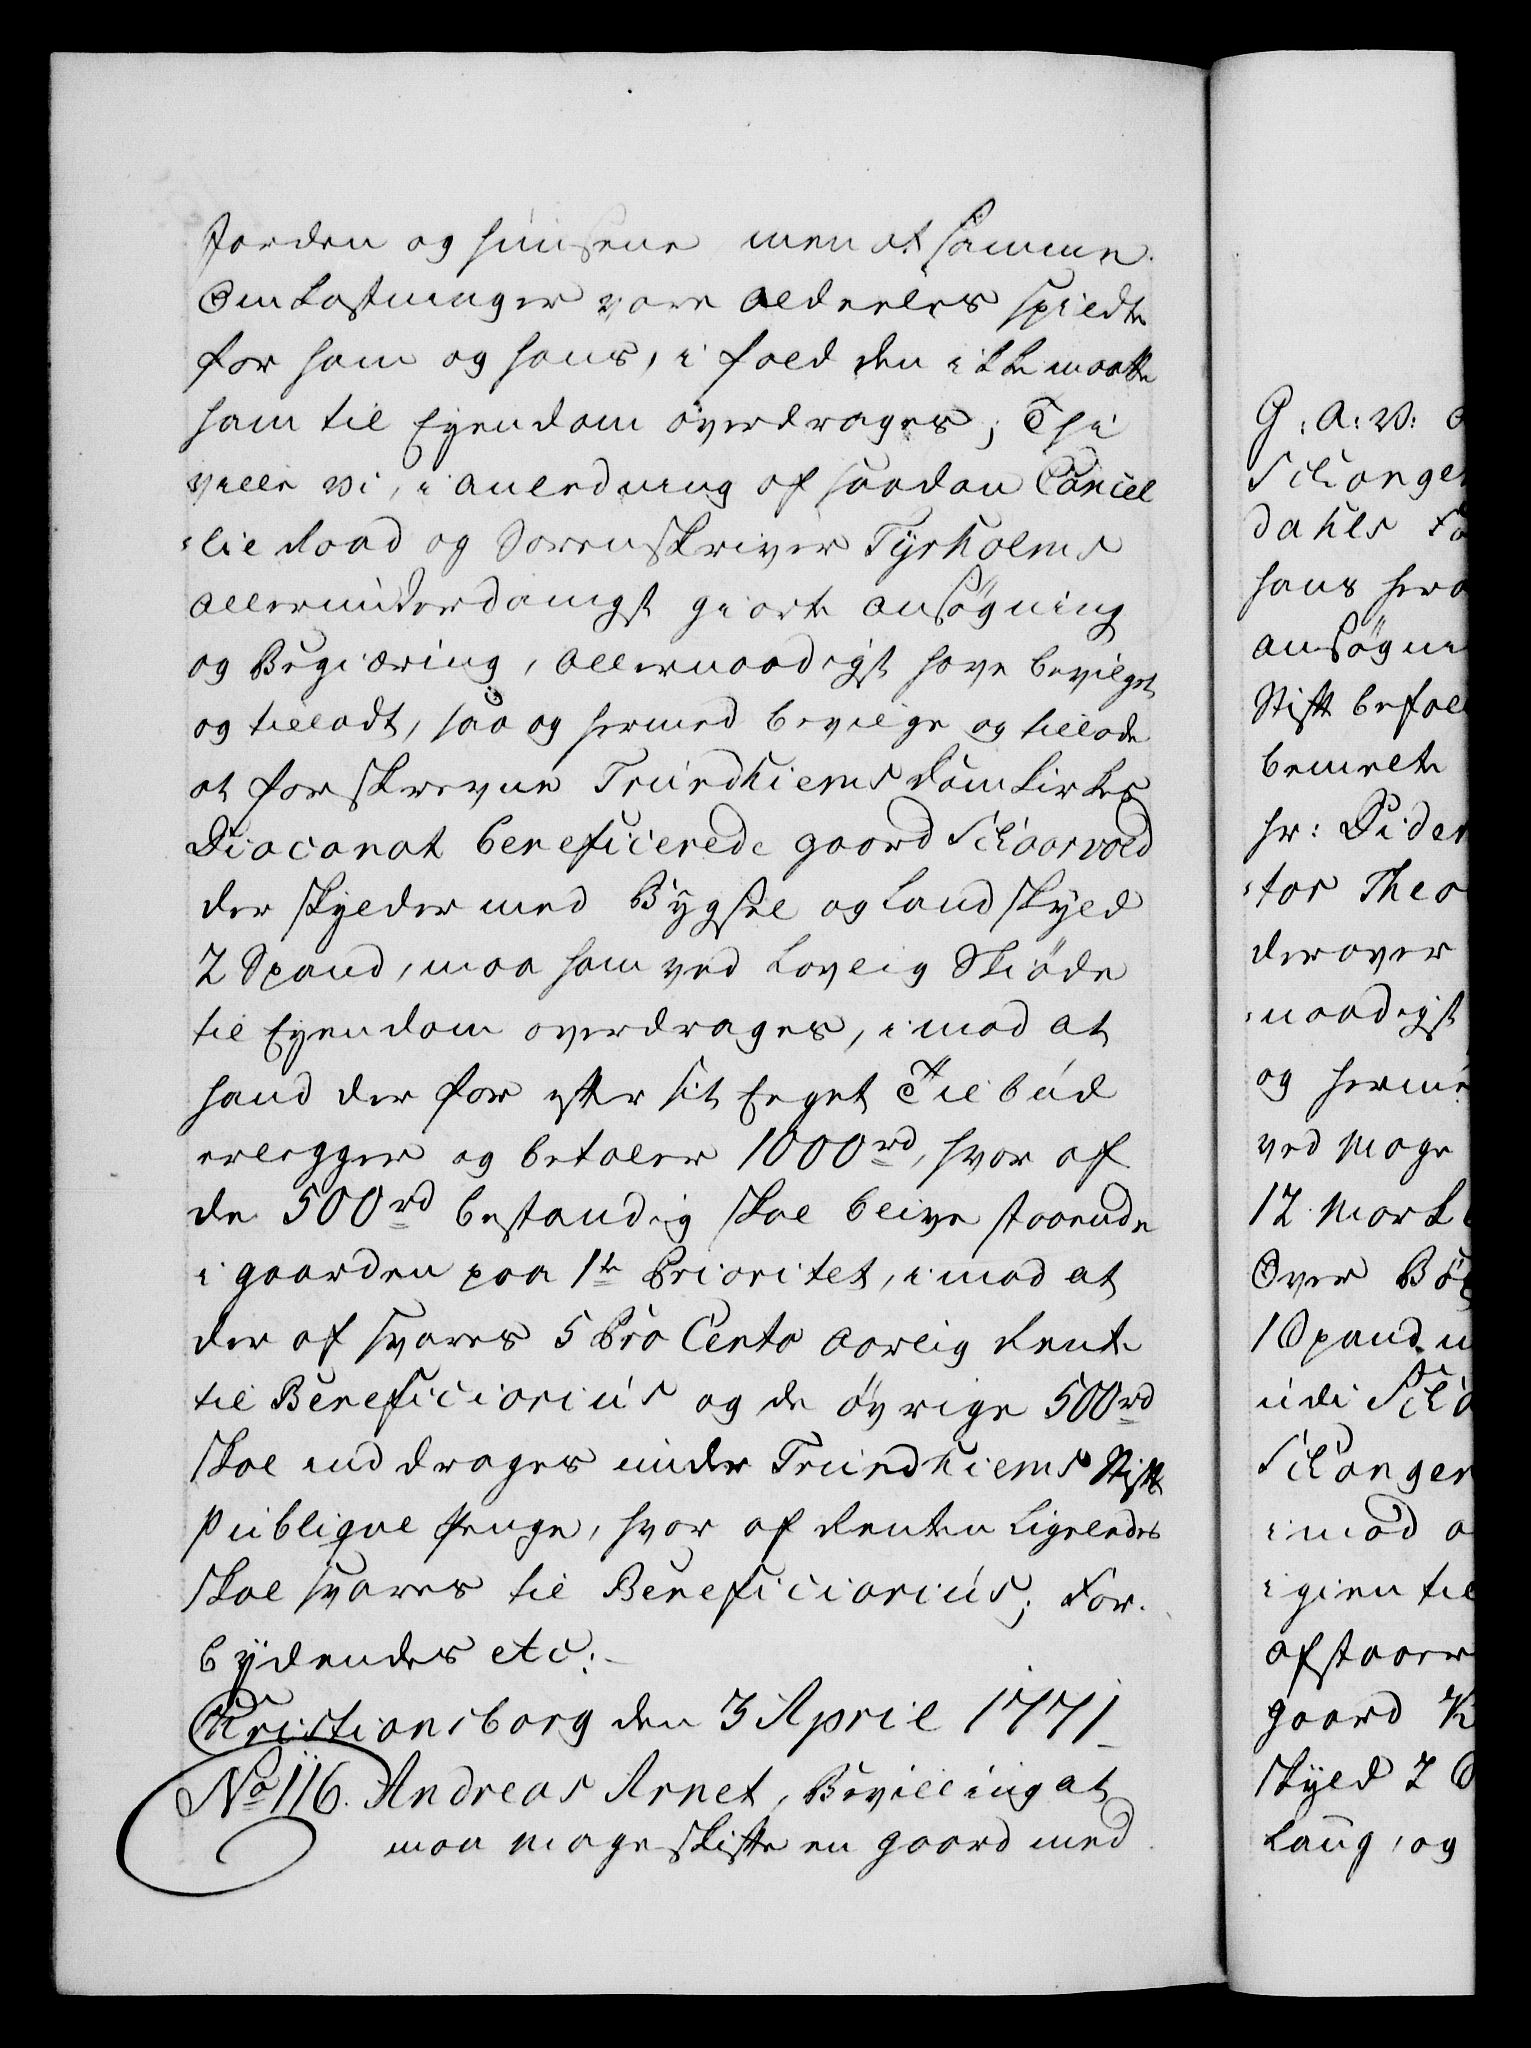 Jorden og huusene men at samme
Omkostninger vare aldeeles spildte
for ham og hans, i fald den ikke maatte
ham til Eyendom overdrages; Thi
ville vi, i anledning af saadan Cancel
-lie Raad og Sorenskriver Tyrholms
allerunderdanigst giorte ansøgning
og Begiæring, allernaadigst have bevilget
og tilladt, saa og hermed bevilge og tillade
at forskrevne Trundhiems Domkirkes
Diaconat beneficerede gaard Schaarvold
der skylder med Bygsel og Landskyld
2 Spand, maa ham ved Lovlig Skiøde
til Eyendom overdrages, imod at
hand der for efter sit Eeget Tilbud
erlegger og betaler 1000 rd, hvor af
de 500 rd bestandig skal blive staaende
i gaarden paa 1te Prioritet, imod at
der af svares 5 Pro Cento aarlig Rente
til Beneficiarius og de øvrige 500 rd
skal inddrages under Trundhiems Stifts
Publiqve Penge, hvor af Renten Ligeledes
skal svares til Beneficiarius; For-
bydendes etc:
Christiansborg den 3 April 1771
No 116. Andreas Arnet, Bevilling at
maa mageskifte en gaard med
G: A: V:
Schanger
dahls
hans
ansøgni
Stift befal
bemelte
hr: Dider
-tor Theo
derover
-naadigst
og herme
ved Mage
12 Mark
Over
1 Spand
udi
Schanger
imod
igien til
afstaaer
gaard
skyld 2
Laug, og